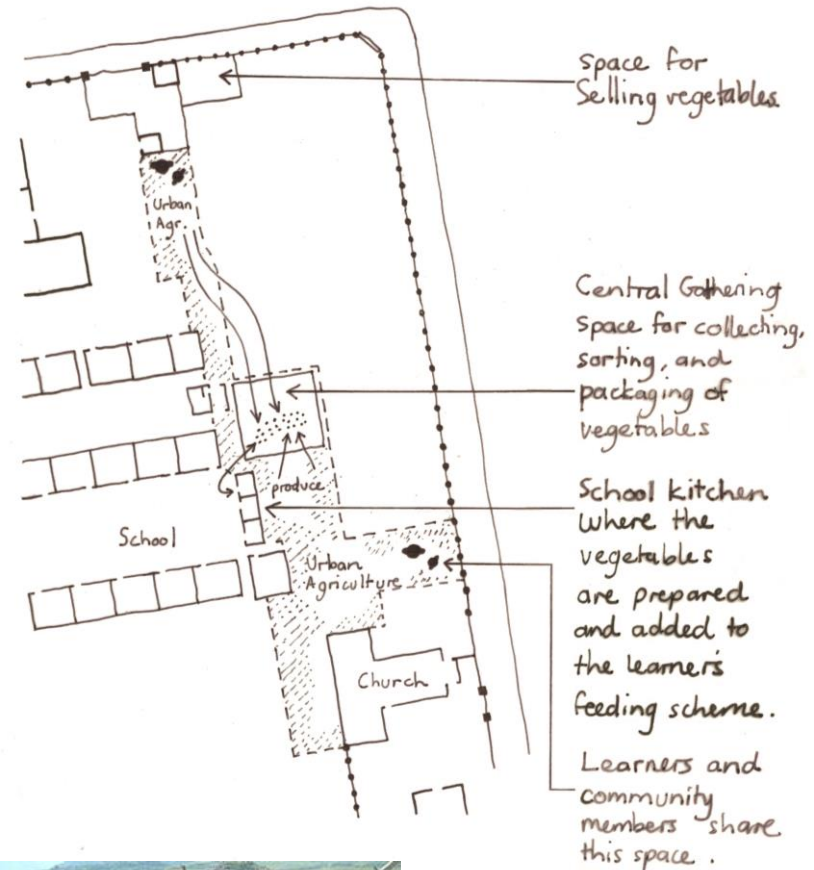 space for
Selling vegetables.
Urban
Agr.
Central Gathering
space for collecting,
sorting, and
packaging of
vegetables
produce
School kitchen
where the
vegetables
are prepared
and added to
the learner's
feeding scheme.
School
Urban
Agriculture
Church
Learners and
community
members share
this space.